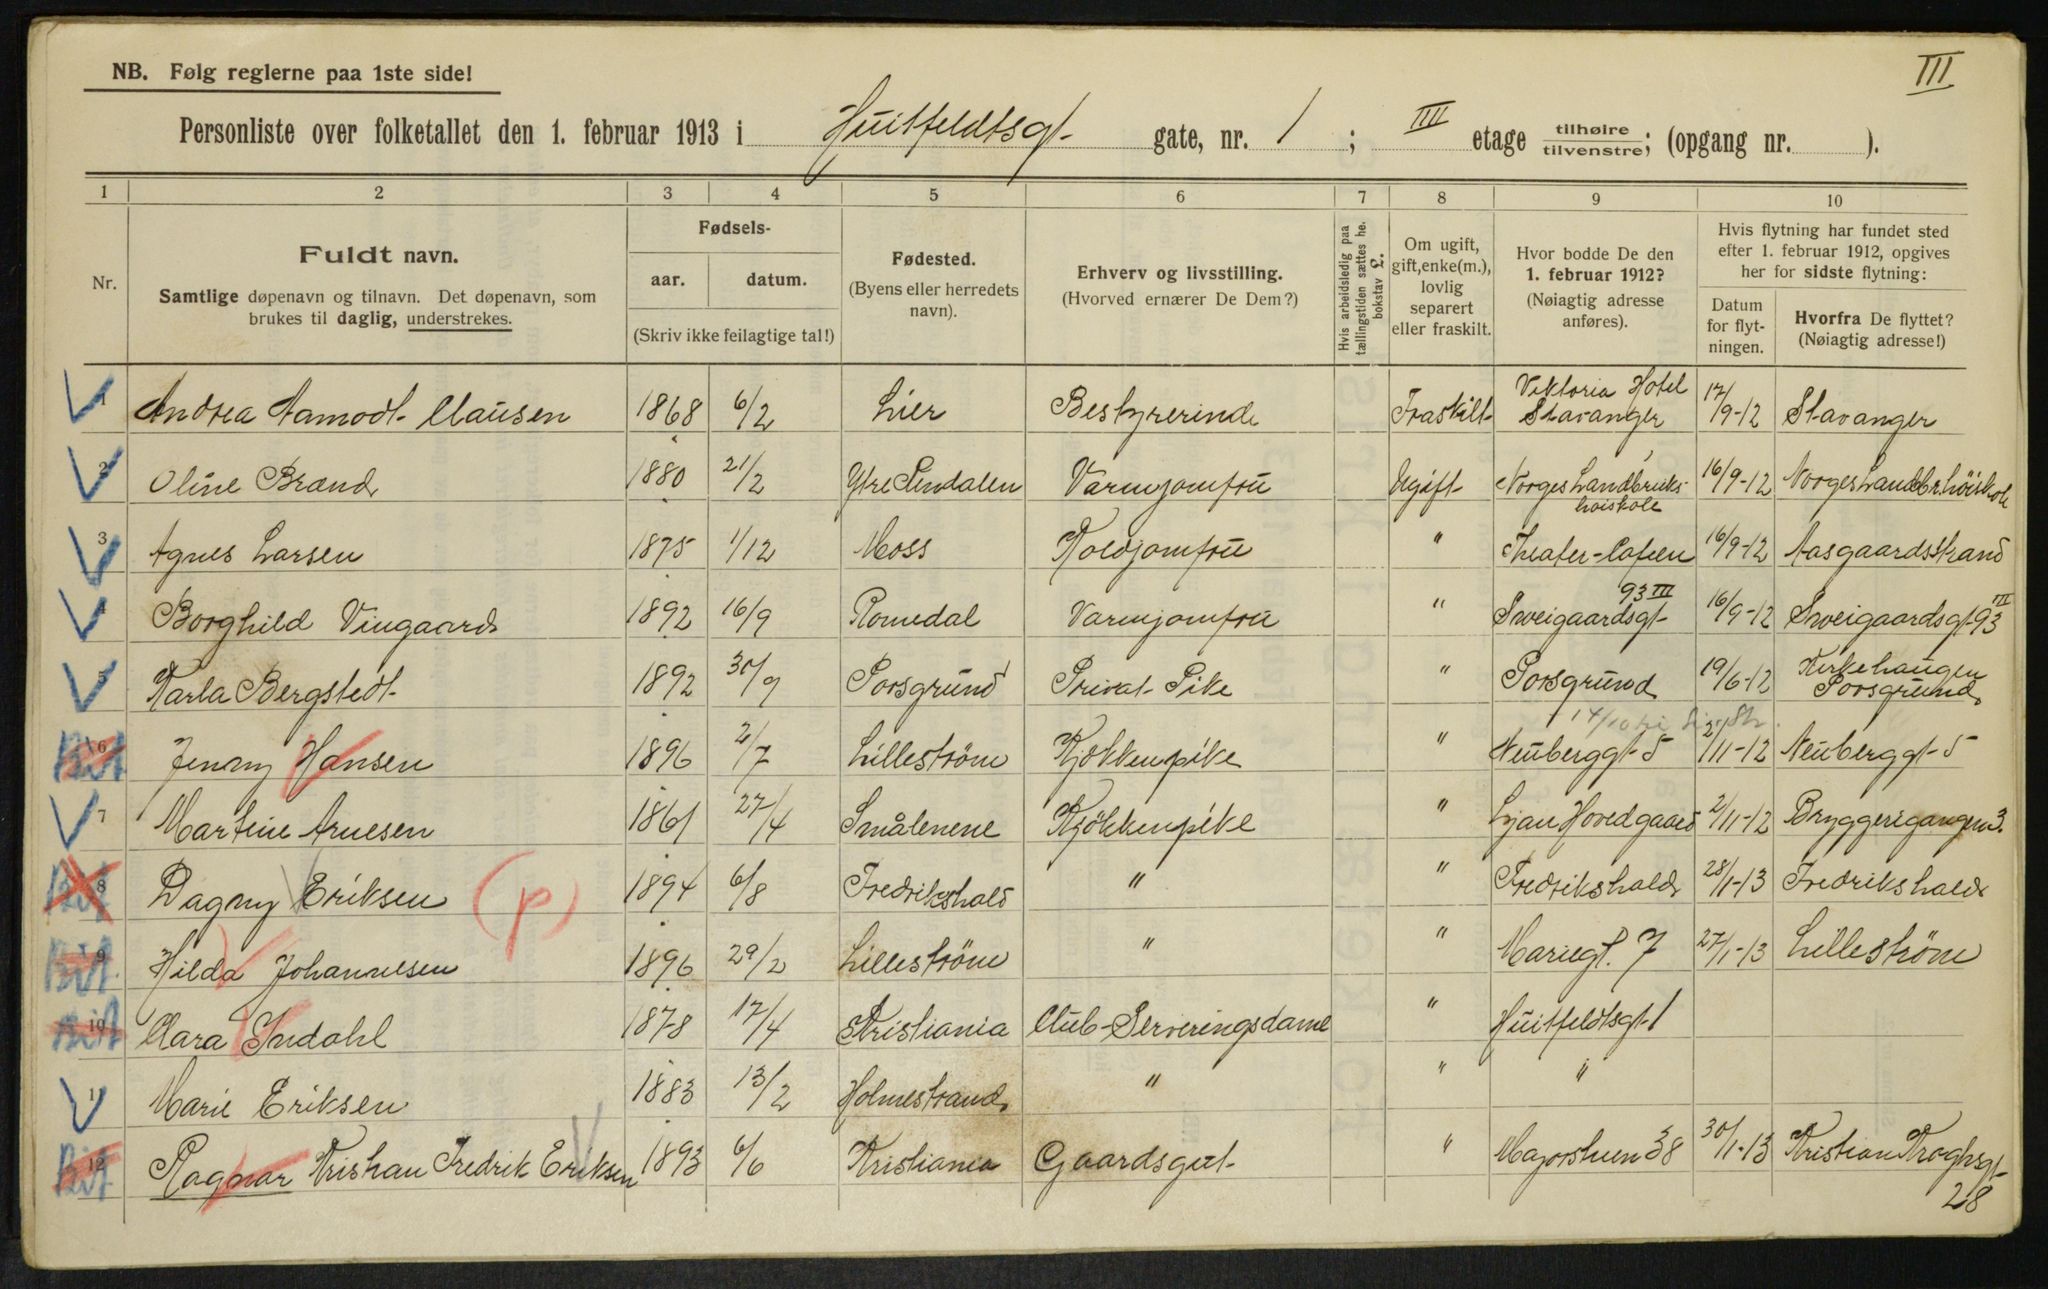 III
NB. Følg reglerne paa 1ste side!
Personliste over folketallet den 1. februar 1913 i Huitfeldtsgt- gate, nr. 1 ; III etage tilhøire tilvenstre; (opgang nr. ).
1 2 3 4 5 6 7 8 9 10
Nr.
Fuldt navn.
Samtlige døpenavn og tilnavn. Det døpenavn, som
brukes til daglig, understrekes.
Fødsels-
aar. datum.
(Skriv ikke feilagtige tal!)
Fødested.
(Byens eller herredets
navn).
Erhverv og livsstilling.
(Hvorved ernærer De Dem?)
Hvis arbeidsledig paa
tællingstiden sættes he.
bokstav L.
Om ugift,
gift, enke(m.),
lovlig
separert
eller fraskilt.
Hvor bodde De den
1. februar 1912?
(Nøiagtig adresse
anføres).
Hvis flytning har fundet sted
efter 1. februar 1912, opgives
her for sidste flytning:
Datum
for flyt-
ningen.
Hvorfra De flyttet?
(Nøiagtig adresse!)
1 Andrea Aamodt- Clausen 1868 6/2 Lier Bestyrerinde Fraskilt- Viktoria Hotel Stavanger 17/9-12 Stavanger
2 Oline Brand 1880 21/2 Ytre Rendalen Varmjomfru Ugift- Norges Landbruks- høiskole 16/9-12 Norges Landbr. høiskole
3 Agnes Larsen 1875 1/12 Moss Koldjomfru " Theater-Cafeen 16/9-12 Aasgaardsstrand
4 Borghild Vingaard 1892 16/9 Romedal Varmjomfru " Sweigaardsgt- 93 III 16/9-12 Sweigaardsgt 93 III
5 Karla Bergstedt- 1892 30/9 Porsgrund Privat- Pike " Porsgrund 19/6-12 Kirkehaugen Porsgrund
6 Jenny Hansen 1896 2/7 Lilleström Kjøkkenpike " Neuberggt- 5 2/11-12 Neuberggt- 5
7 Martine Arnesen 1861 27/4 Smålenene Kjøkkenpike " Ljan Hovedgaard 2/11-12 Bryggerigangen 3.
8 Dagny Eriksen (p) 1894 6/8 Fredrikshald " " Fredrikshald 28/1-13 Fredrikshald
9 Hilda Johannesen 1896 29/2 Lilleström " " Mariegt. 7 27/1-13 Lilleström
10 Clara Indahl 1878 17/4 Kristiania Club-Serveringsdame " Huitfeldtsgt- 1
11 Marie Eriksen 1883 13/2 Holmestrand " " "
12 Ragnar Kristian Fredrik Eriksen 1893 6/6 Kristiania Gaardsgut- " Majorstuen 38 30/1-13 Kristian Kroghsgt- 28